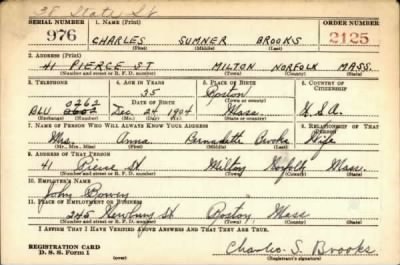 38 State St
SERIAL NUMBER 1. NAME (Print) ORDER NUMBER
976 CHARLES SUMNER BROOKS 2125
(First) (Middle) (Last)
2. ADDRESS (Print)
41 PIERCE ST MILTON NORFOLK MASS.
(Number and street or R. F. D. number) (Town) (County) (State)
3. TELEPHONE 4. AGE IN YEARS 5. PLACE OF BIRTH 6. COUNTRY OF CITIZENSHIP
35 Boston
DATE OF BIRTH (Town or county)
0262
BLU Dec 24 1904 Mass. U.S.A.
(Exchange) (Number) (Mo.) (Day) (Yr.) (State or country)
7. NAME OF PERSON WHO WILL ALWAYS KNOW YOUR ADDRESS 8. RELATIONSHIP OF THAT PERSON
Mrs. Anna Bernadette Brooks Wife
(Mr., Mrs., Miss) (First) (Middle) (Last)
9. ADDRESS OF THAT PERSON
41 Pierce St Milton Norfolk Mass.
(Number and street or R. F. D. number) (Town) (County) (State)
10. EMPLOYER'S NAME
John Bowen
11. PLACE OF EMPLOYMENT OR BUSINESS
245 Newbury St Boston, Mass
(Number and street or R. F. D. number) (Town) (County) (State)
I AFFIRM THAT I HAVE VERIFIED ABOVE ANSWERS AND THAT THEY ARE TRUE.
REGISTRATION CARD
D. S. S. Form 1 (over) Charles S. Brooks
(Registrant's signature)